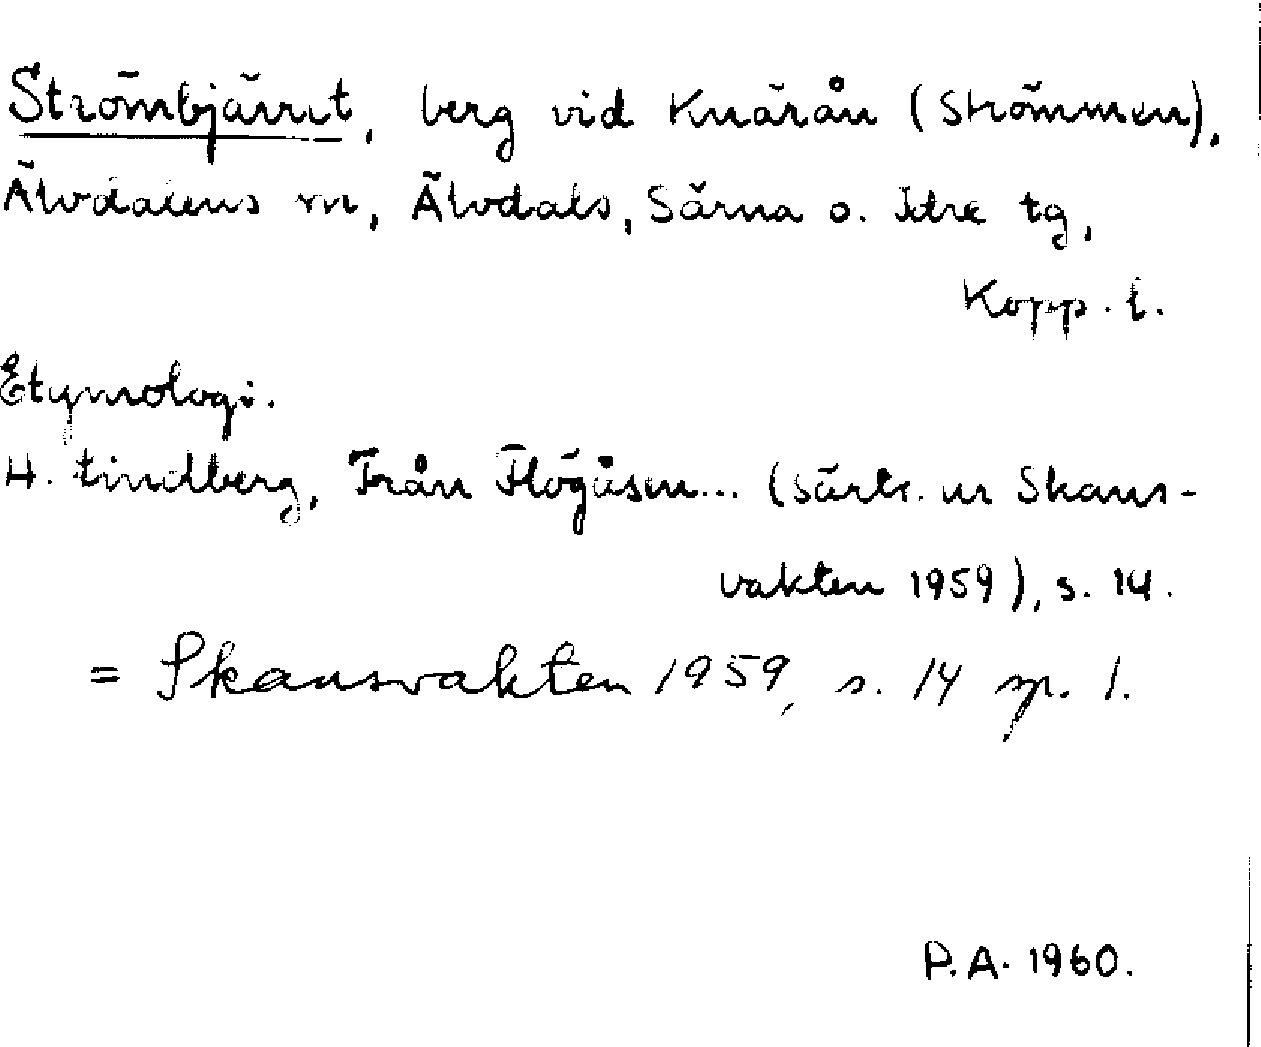 Strömbjärrit, berg vid Knärån (Strömmen),
Älvdalens sn, Älvdals, Särna o. Idre tg,
Kopp. l.
Etymologi.
H. Lindberg, Från Flögåsen... (särtr. ur Skans-
vakten 1959), s. 14.
= Skansvakten 1959, s. 14 sp. 1.
P.A. 1960.